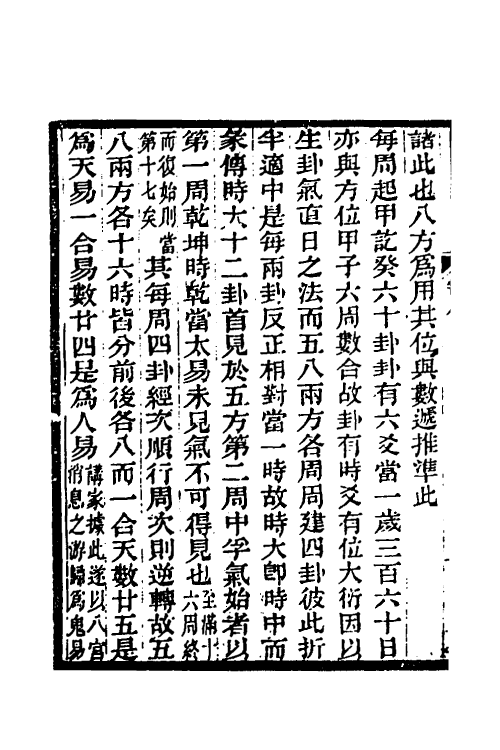 諸此也八方爲用其位與數遞推準此
每周起甲訖癸六十卦卦有六爻當一歲三百六十日
亦與方位甲子六周數合故卦有時爻有位大衍因以
生卦氣直日之法而五八兩方各周周建四卦彼此折
半適中是每兩卦反正相對當一時故時大卽時中而
彖傳時大十二卦首見於五方第二周中孚氣始者以
第一周乾坤時乾當太易未見氣不可得見也至滿十六周終
而復始則當第十七矣其每周四卦經次順行周次則逆轉故五
八兩方各十六時皆分前後各八而一合天數廿五是
爲天易一合易數廿四是爲人易講家據此遂以八宮消息之游歸爲鬼易